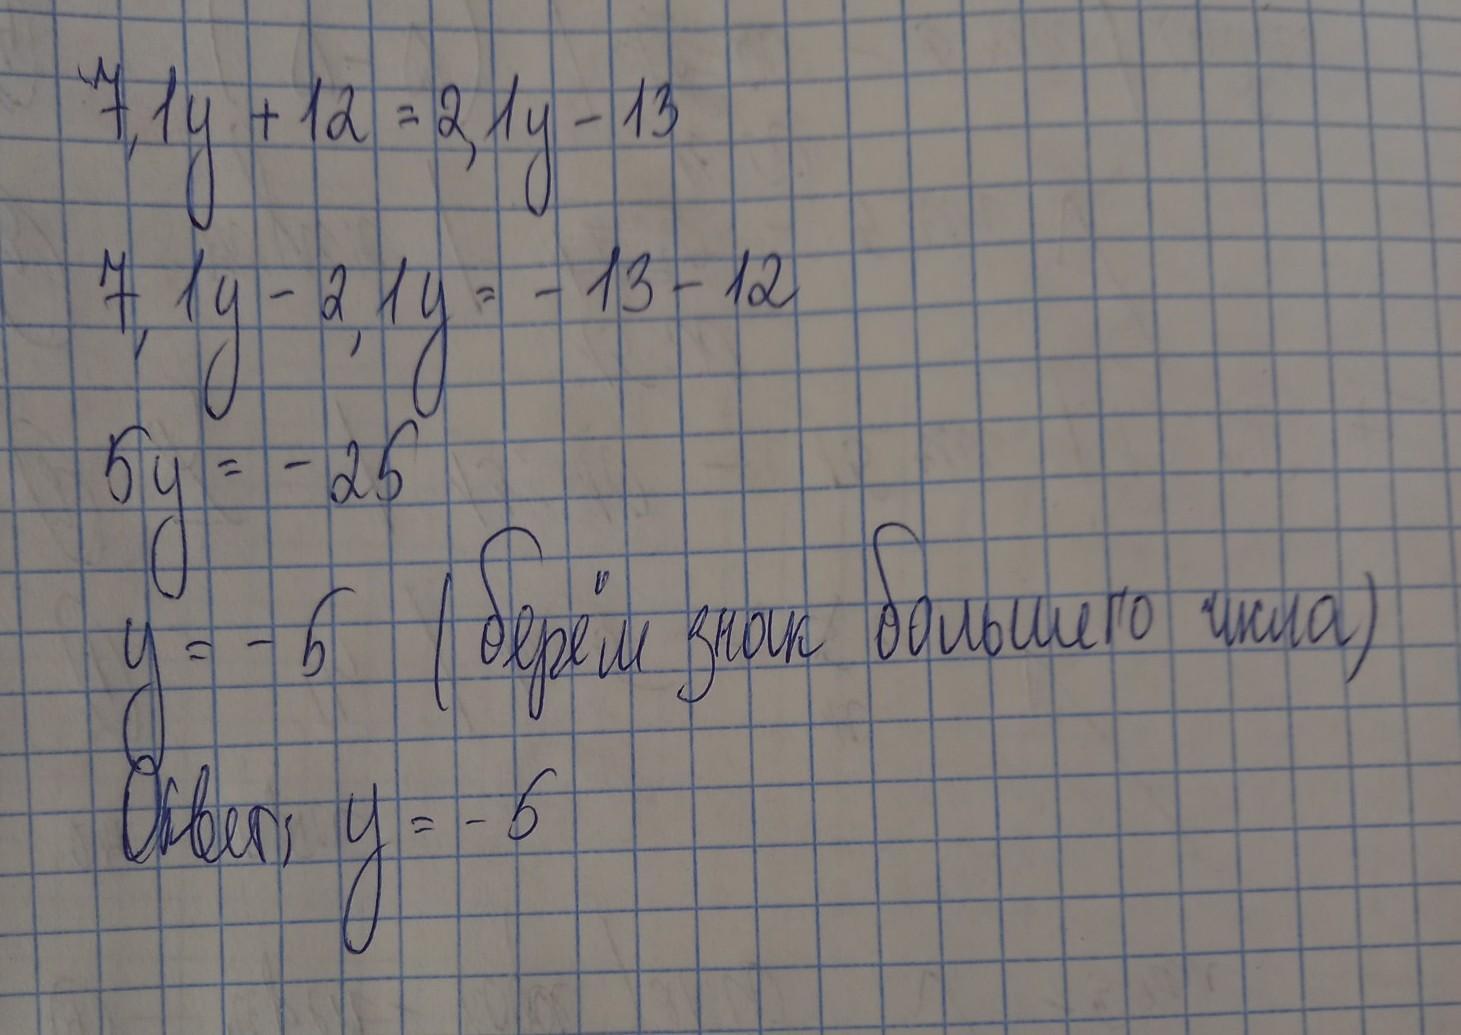 7,1y + 12 = 2,1y - 13
7,1y - 2,1y = - 13 - 12
5y = - 25
y = - 5 (берём знак большего числа)
Ответ: y = - 5